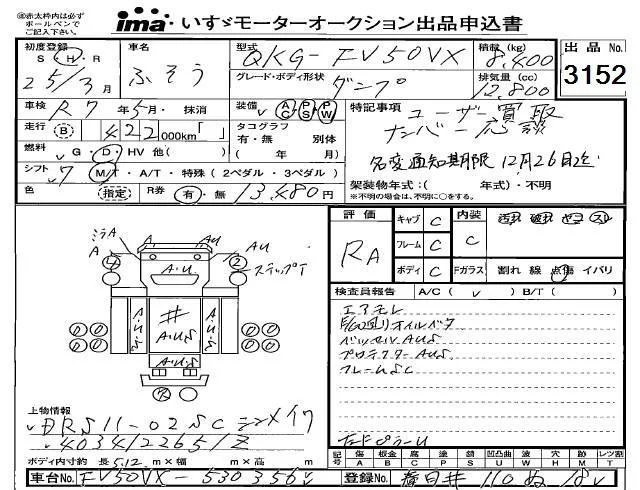 ※赤太枠内は必ず
ボールペンで
ご記入下さい。
ima いすゞモーターオークション出品申込書
初度登録 S・H・R 25年/3月
車名 ふそう
型式 QKG-FV50VX
積載(kg) 8,400
出品No. 3152
グレード・ボディ形状 ダンプ
排気量(cc) 12,800
車検 R7年5月・抹消
装備 AC PS PW
特記事項 ユーザー買取
ナンバー応談
走行 B 422,000km「 」
タコグラフ 有・無 別体
( 年 月)
名変通知期限 12月26日迄
燃料 G・D・HV 他( )
シフト 7 M/T・A/T・特殊(2ペダル・3ペダル)
架装物年式:( 年式)・不明
※不明の場合は、不明に○をする。
色 指定 R券 有・無 13,480円
評価 RA
キャブ C 内装 C
フレーム C
ボディ C Fガラス 割れ 線 点傷 イバリ
ミラA A A AU
A ステップT
A・U
A・U・S A・U・S
井 AUS
AUS
検査員報告 A/C( ) B/T( )
エアモレ
ベッセルAUS
プロテクターAUS
フレームSC
上物情報
DRS11-02SC シンメイワ
403412265/Z
ボディ内寸約 長 5.12 m×幅 m×高 m
記号 傷A 板金B 腐C 塗P 錆S 凹凸曲U 波W 穴H 跡M レツ割T
車台No. FV50VX-530356
登録No. 春日井 110 ぬ 18